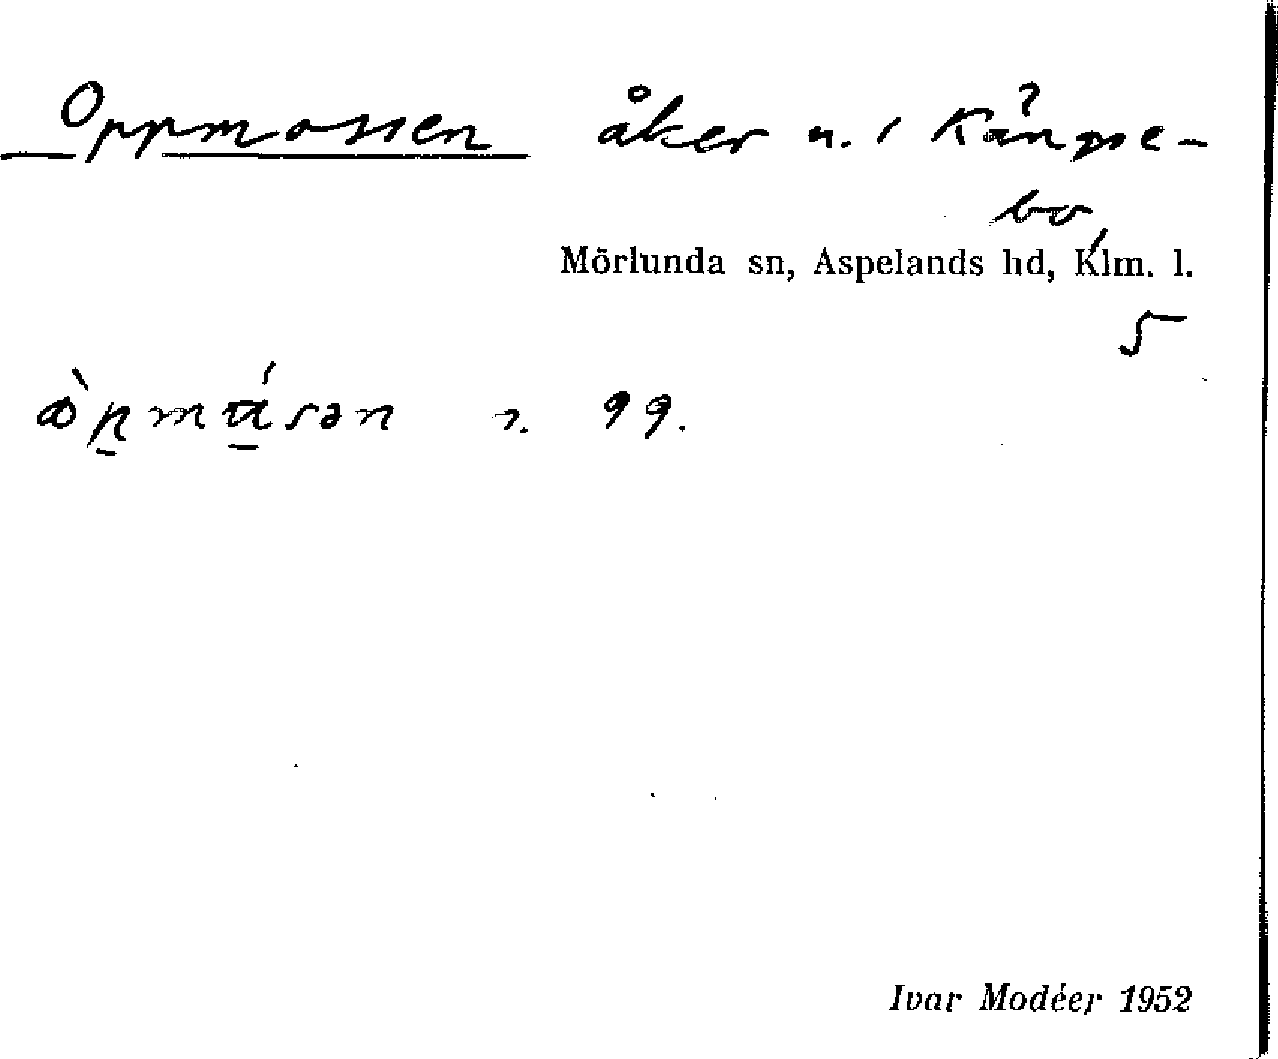 Oppmossen åker n. i Kånge-
bo,
Mörlunda sn, Aspelands hd, Klm. l.
5
n. 99.
Ivar Modéer 1952